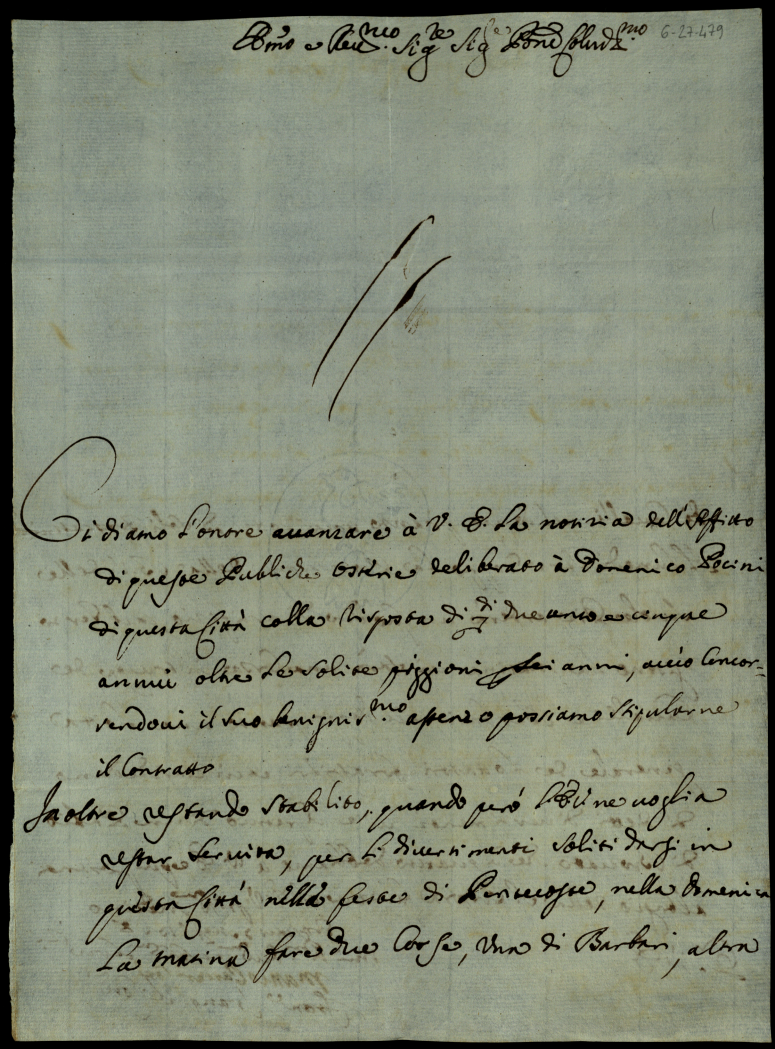 Emo e Reu.mo Sig.re Sig.e Pone Colud.mo 6-27-479
Ci diamo l'onore auanzare à V. E. La notizia dell'Affitto
di queste Publiche Osterie deliberato à Domenico Pocini
di questa Città colla risposta di di due cento e cinque
annui oltre le solite piggioni per sei anni, acciò Concor-
rendoui il suo benignis.mo assenzo possiamo stipularne
il Contratto
Inoltre restando stabilito, quando però l'E ne uoglia
restar seruita, per li diuertimenti soliti darsi in
questa Città nelle feste di Pentecoste, nella Domenica
La matina fare due Corse, Una di Barbari, altra